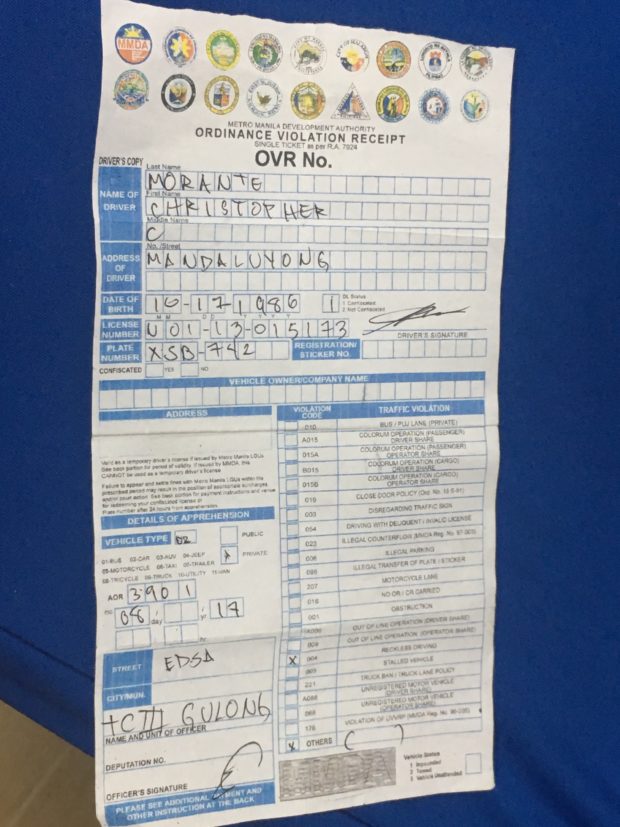 MMDA
METRO MANILA DEVELOPMENT AUTHORITY
ORDINANCE VIOLATION RECEIPT
SINGLE TICKET as per R.A. 7924
OVR No.
DRIVER'S COPY
Last Name
NAME OF DRIVER
MORANTE
First Name
CHRISTOPHER
Middle Name
C
No. /Street
ADDRESS OF DRIVER
MANDALUYONG
DATE OF BIRTH
10-17-1986
1
DL Status
1 Confiscated
2 Not Confiscated
LICENSE NUMBER
N01-13-015173
DRIVER'S SIGNATURE
PLATE NUMBER
XSB-742
REGISTRATION/ STICKER NO.
CONFISCATED
YES
NO
VEHICLE OWNER/COMPANY NAME
ADDRESS
Valid as a temporary driver's license if issued by Metro Manila LGUs
See back portion for period of validity. If issued by MMDA, this
CANNOT be used as a temporary driver's license
Failure to appear and settle fines with Metro Manila LGUs within the
prescribed period may result in the position of automatic surcharges
and/or court action. See back portion for payment instructions and venue
for redeeming your confiscated license or
Plate number after 24 hours from apprehension.
DETAILS OF APPREHENSION
VEHICLE TYPE
02
PUBLIC
PRIVATE
01-BUS 02-CAR 03-AUV 04-JEEP
05-MOTORCYCLE 06-TAXI 07-TRAILER
08-TRICYCLE 09-TRUCK 10-UTILITY 11-VAN
AOR
3901
08
day
yr
17
hr
STREET
EDSA
CITY/MUN.
GULONG
NAME AND UNIT OF OFFICER
DEPUTATION NO.
OFFICER'S SIGNATURE
PLEASE SEE ADDITIONAL PAYMENT AND
OTHER INSTRUCTION AT THE BACK
VIOLATION CODE
TRAFFIC VIOLATION
010
BUS / PUJ LANE (PRIVATE)
A015
COLORUM OPERATION (PASSENGER)
DRIVER SHARE
015A
COLORUM OPERATION (PASSENGER)
OPERATOR SHARE
B015
COLORUM OPERATION (CARGO)
DRIVER SHARE
015B
COLORUM OPERATION (CARGO)
OPERATOR SHARE
019
CLOSE DOOR POLICY
003
DISREGARDING TRAFFIC SIGN
054
DRIVING WITH DELIQUENT / INVALID LICENSE
023
ILLEGAL COUNTERFLOW
008
ILLEGAL PARKING
ILLEGAL TRANSFER OF PLATE / STICKER
207
MOTORCYCLE LANE
016
NO OR / CR CARRIED
001
OBSTRUCTION
OUT OF LINE OPERATION (DRIVER SHARE)
OUT OF LINE OPERATION (OPERATOR SHARE)
RECKLESS DRIVING
X
004
STALLED VEHICLE
TRUCK BAN / TRUCK LANE POLICY
221
UNREGISTERED MOTOR VEHICLE
(DRIVER SHARE)
UNREGISTERED MOTOR VEHICLE
(OPERATOR SHARE)
178
VIOLATION OF UVVRP
x
OTHERS
MMDA
Vehicle Status
1 Impounded
2 Towed
3 Vehicle Unattended